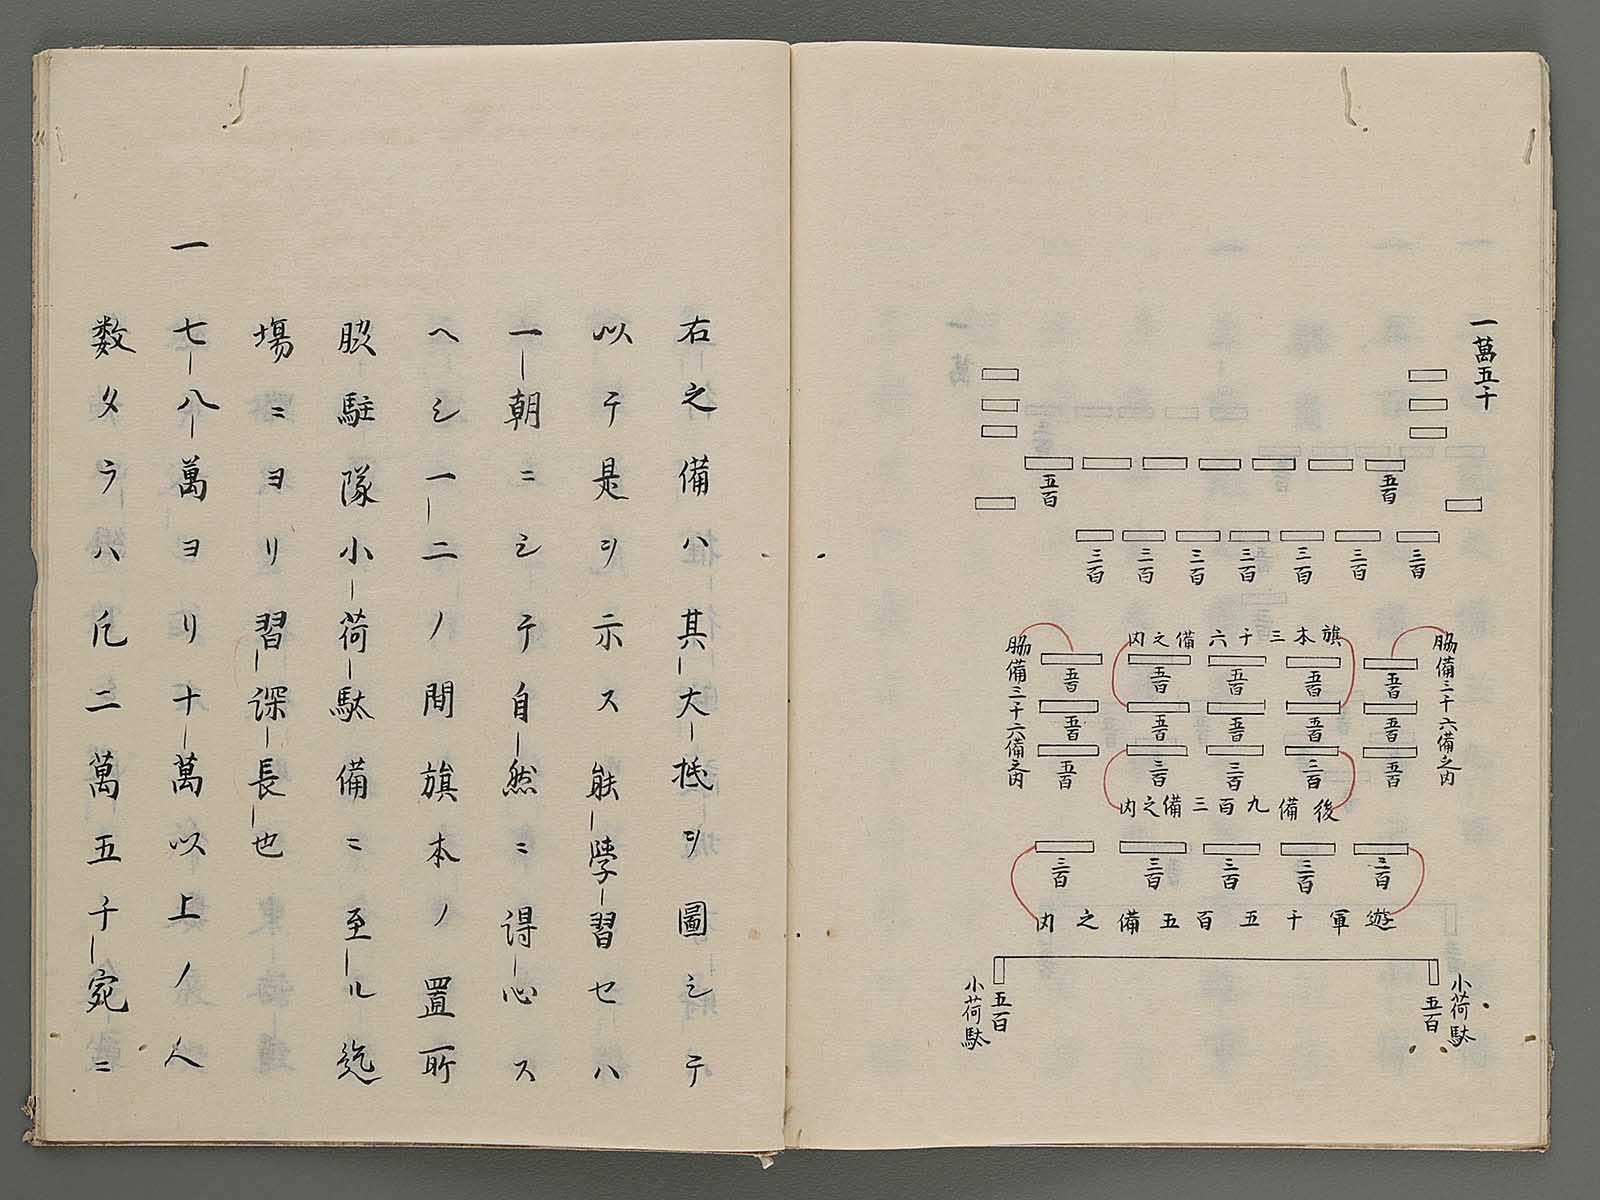 一萬五千
五百 五百
三百 三百 三百 三百 三百 三百 三百
脇備三千六備之内
旗本三千六備之内
脇備三千六備之内
五百 五百 五百 五百 五百
五百 五百 五百 五百 五百
五百 三百 三百 三百 五百
後備九百三備之内
三百 三百 三百 三百 三百
遊軍千五百五備之内
小荷駄
五百
五百
小荷駄
右之備ハ其大抵ヲ圖シテ
以テ是ヲ示ス能學習セハ
一朝ニシテ自然ニ得心ス
ヘシ一二ノ間旗本ノ置所
脇駐隊小荷駄備ニ至ル迄
塲ニヨリ習深長也
一 七八萬ヨリ十萬以上ノ人
数タラハ凡二萬五千宛ニ